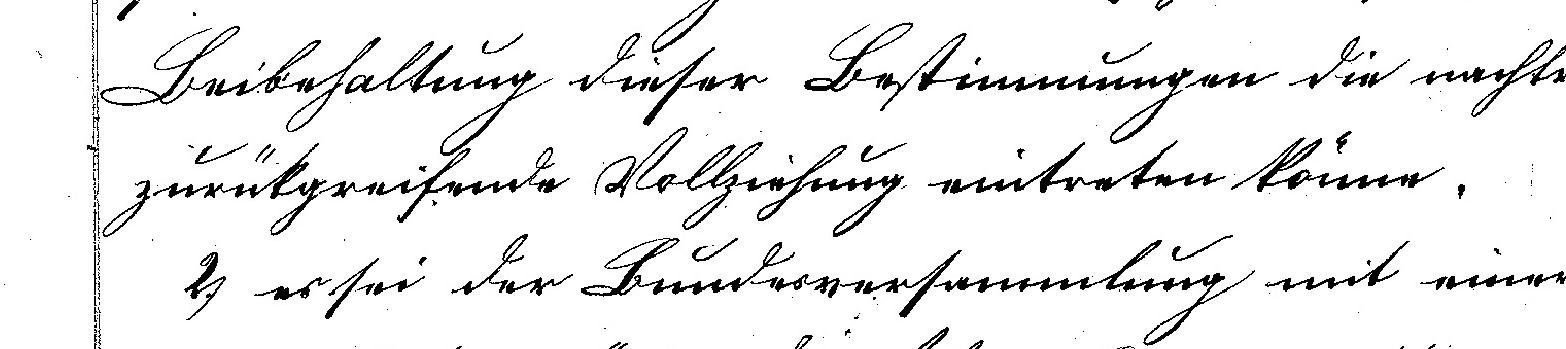 Beibehaltung dieser Bestimmungen die
zurükgreifende Vollziehung eintreten könne.
2) es sei der Bundesversammlung mit einer